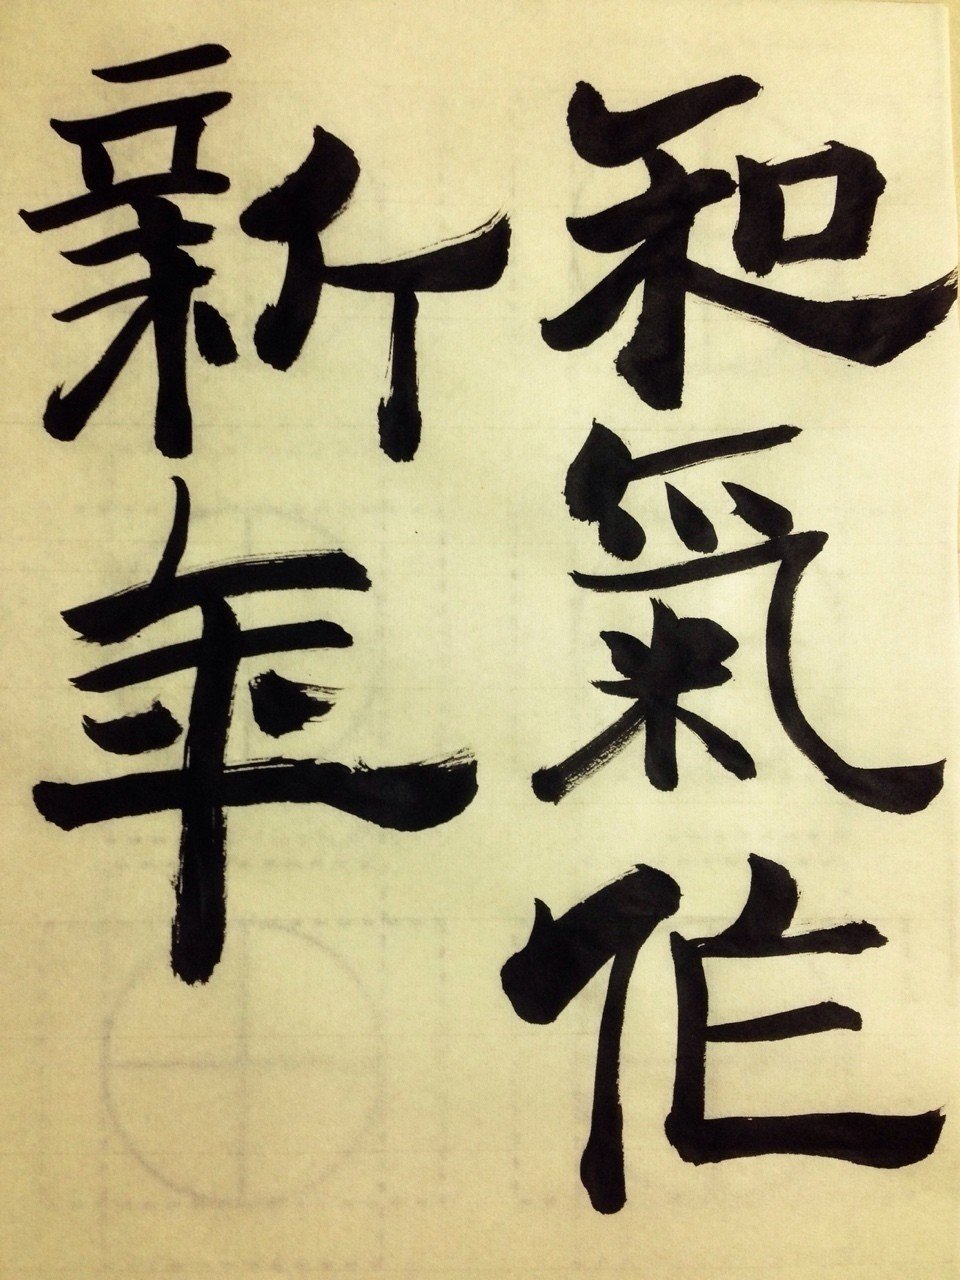 和氣作
新年